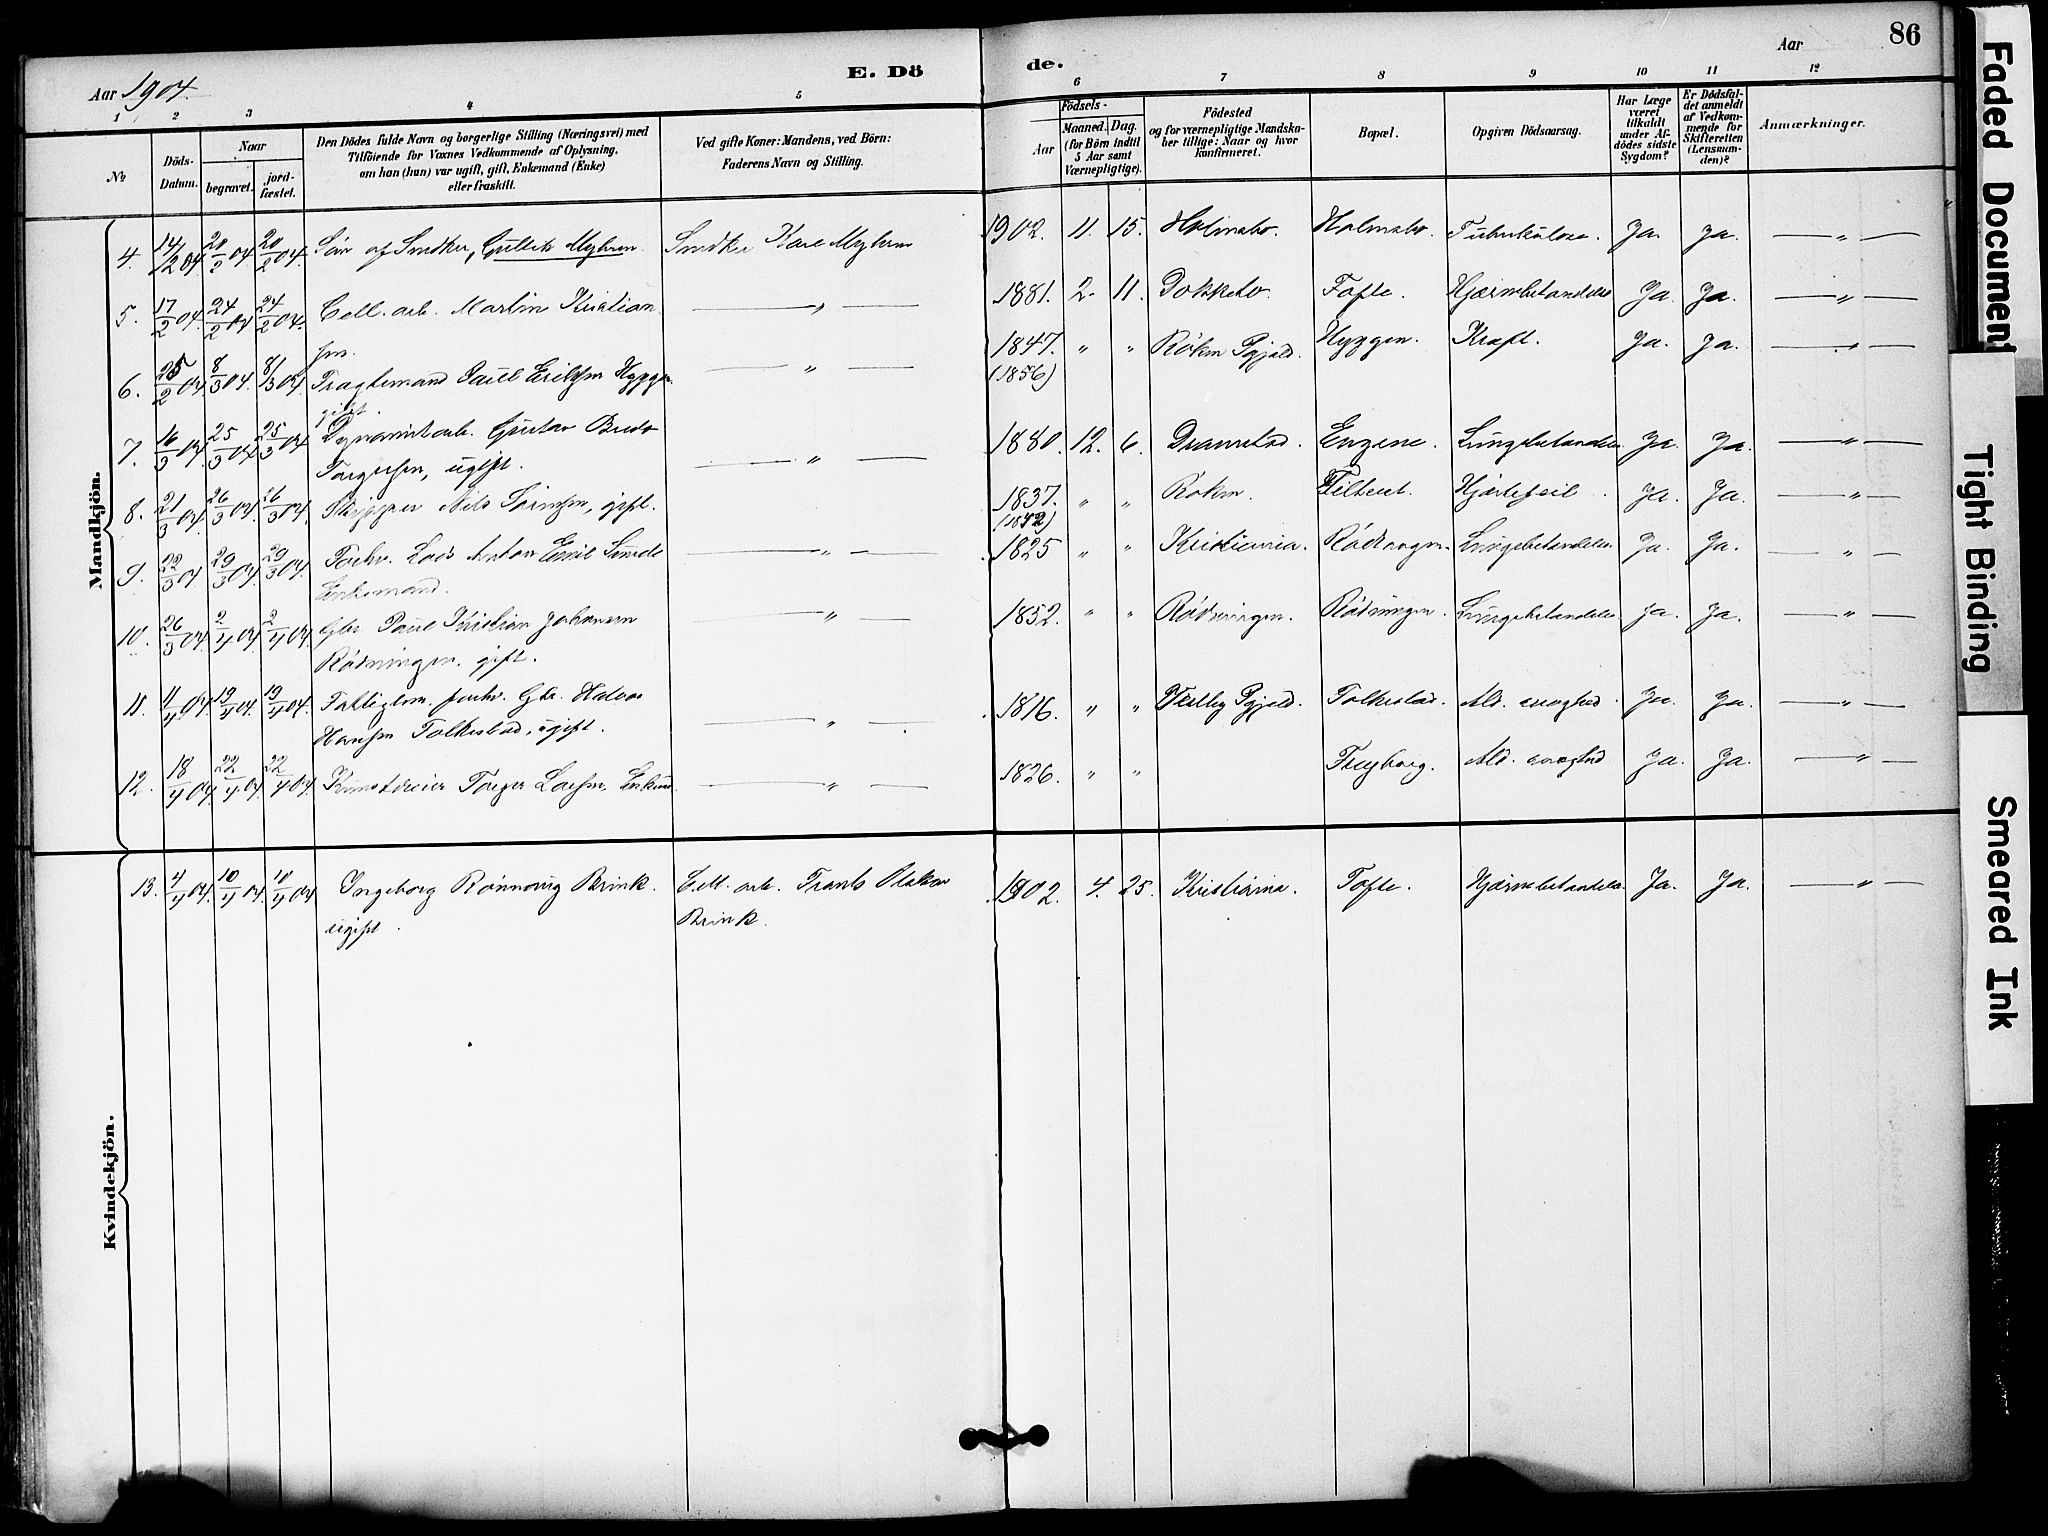 86
Aar 1904.
E. Dö
de.
Aar
1 2 3 4 5 6 7 8 9 10 11 12
No
Döds-
Datum.
Naar
begravet.
jord-
fæstet.
Den Dödes fulde Navn og borgerlige Stilling (Næringsvei) med
Tilföiende for Voxnes Vedkommende af Oplysning,
om han (hun) var ugift, gift, Enkemand (Enke)
eller fraskilt.
Ved gifte Koner: Mandens, ved Börn:
Faderens Navn og Stilling.
Födsels-
Aar
Maaned. Dag.
(for Börn indtil
5 Aar samt
Værnepligtige).
Födested
og for værnepligtige Mandska-
ber tillige: Naar og hvor
konfirmeret.
Bopæl.
Opgiven Dödsaarsag.
Har Læge
været
tilkaldt
under Af-
dödes sidste
Sygdom?
Er Dödsfal-
det anmeldt
af Vedkom-
mende for
Skifteretten
(Lensman-
den)?
Anmærkninger.
Mandkjön.
4. 14/2 04. 20/2 04 20/2 04. Sön af Snedker, Gullik Myhren. Snedker Karl Myhren 1902. 11. 15. Holmsbo. Holmsbo. Tuberkulose. Ja. Ja. — " —
5. 17/2 04. 24/2 04 24/2 04. Cell. arb. Martin Kristian- — " — 1881. 2. 11. Tofte. Hjærnebetændelse Ja. Ja. — " —
sen.
6. 25/2 04. 8/3 04. 8/3 04. Paul Eriksen Hyggen — " — 1847. " " Röken Pgjeld. Hyggen. Kræft. Ja. Ja. — " —
(1856)
gift.
7. 16/3 04 25/3 04 25/3 04 Dynamitarb. Gustav — " — 1880. 12. 6. Engene. Lungebetændelse. Ja. Ja. — " —
Torgersen, ugift.
8. 21/3 04. 26/3 04. 26/3 04. Skipper Nils Sörensen, gift. 1837. " " Röken. Filtvet. Hjertefeil. Ja. Ja. — " —
(1842)
9. 22/3 04 29/3 04. 29/3 04. Forhv. Lods Anton Emil — " — 1825 " " Kristiania. Rödtangen. Lungebetændelse. Ja. Ja. — " —
Enkemand.
10. 26/3 04. 2/4 04. 2/4 04. Gbr. Paul Kristian Johansen — " — 1852. " " Rödningen. Rödningen. Lungebetændelse. Ja. Ja. — " —
Rödningen. gift.
11. 11/4 04. 19/4 04. 19/4 04. Fattiglem. forhv. Gbr. Halvor — " — 1816. " " Vestby Pgjeld. Folkestad. Ald. svaghed. Ja. Ja. — " —
Hansen Folkestad, ugift.
12. 18/4 04 22/4 04 22/4 04. Torger Larsen. Enkem. — " — 1826. " " Freyborg. Ald. svaghed Ja. Ja. — " —
Kvindekjön.
13. 4/4 04. 10/4 04. 10/4 04 Ingeborg Rönnoug Brink. Cell. arb. Frants Oskar 1902. 4. 25. Kristiania. Tofte. Hjærnebetændelse Ja. Ja. — " —
ugift. Brink.
Faded Document
Tight Binding
Smeared Ink